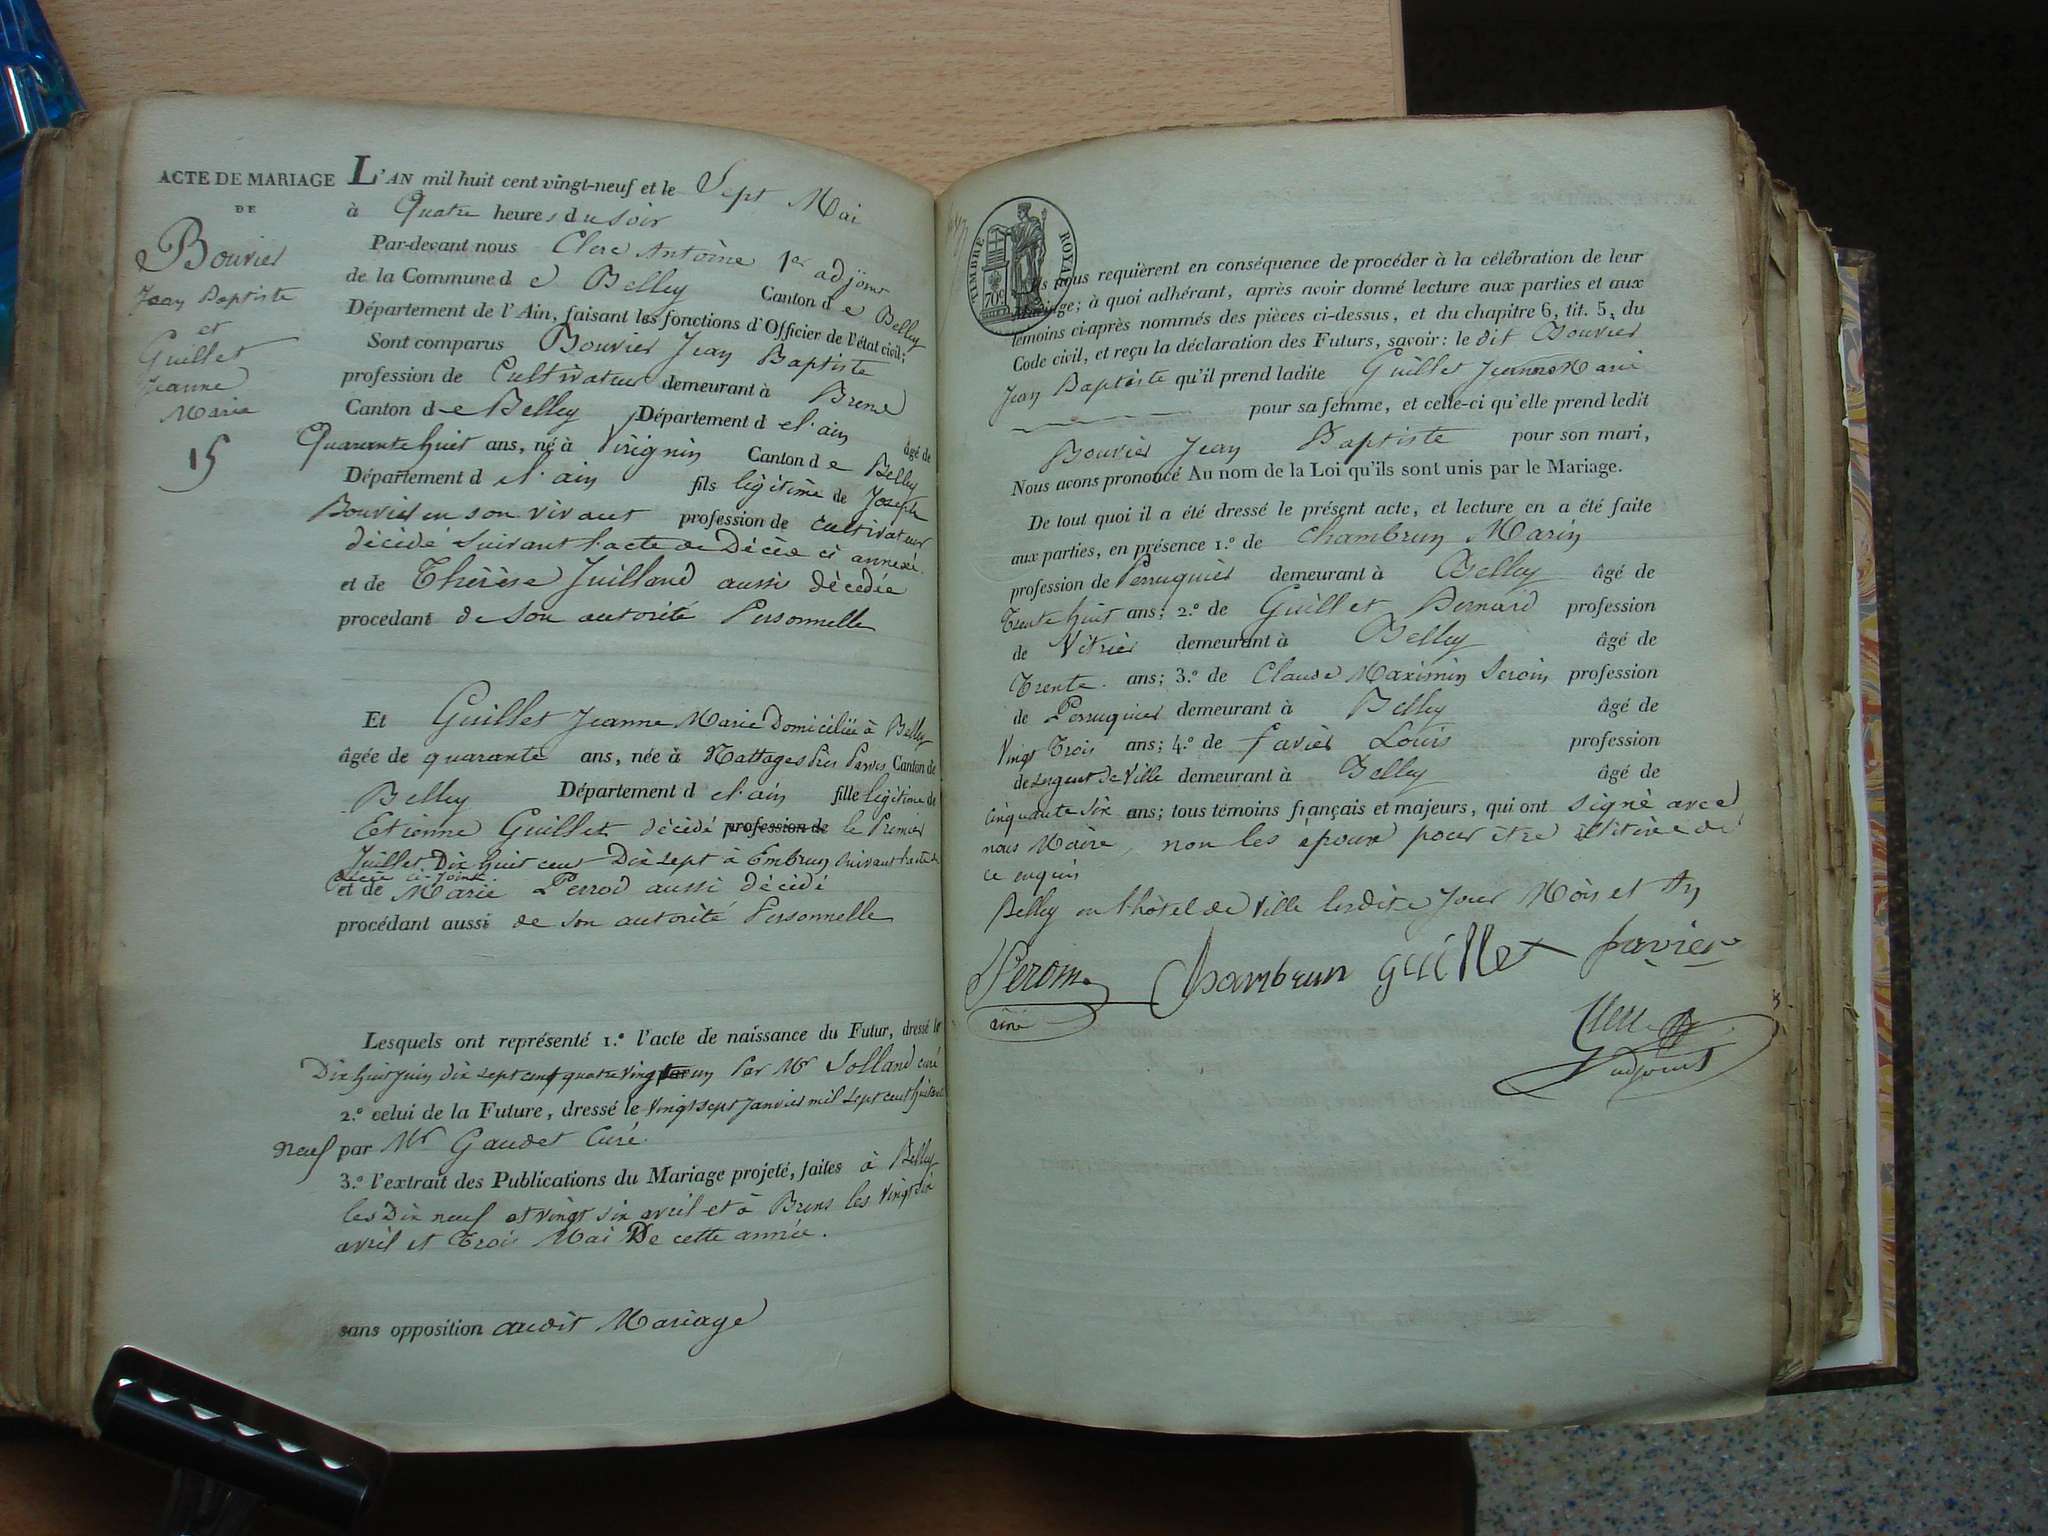 ACTE DE MARIAGE
DE
Bouvier
Jean Baptiste
et
Guillet
Jeanne
Marie
15
L'AN mil huit cent vingt-neuf et le Sept Mai
à Quatre heures du soir
Par-devant nous Clerc Antoine 1er adjoint
de la Commune de Belley Canton de Belley
Département de l'Ain, faisant les fonctions d'Officier de l'état civil;
Sont comparus Bouvier Jean Baptiste
profession de Cultivateur demeurant à Brens
Canton de Belley Département de l'ain âgé de
Quarante huit ans, né à Virignin Canton de Belley
Département de l'ain fils légitime de Joseph
Bouvier en son vivant profession de cultivateur
décédé suivant l'acte de Décès ci annexé.
et de Thérèse Juilland aussi décédée
procédant de son autorité Personnelle
Et Guillet Jeanne Marie Domiciliée à Belley
âgée de quarante ans, née à Nattages Près Parves Canton de
Belley Département de l'ain fille légitime de
Eetienne Guillet décédé profession de le Premier
Juillet Dix huit cent Dix sept à Embrun suivant l'acte de
décès ci-joint
et de Marie Perrod aussi décédé
procédant aussi de son autorité Personnelle
Lesquels ont représenté 1.º l'acte de naissance du Futur, dressé le
Dix huit juin dix sept cent quatre vingt un Par Mr Jolland curé
2.º celui de la Future, dressé le vingt sept Janvier mil sept cent huitante
neuf par Mr Gaudet Curé.
3.º l'extrait des Publications du Mariage projeté, faites à Belley
les Dix neuf et vingt six avril et à Brens les vingt six
avril et Trois Mai De cette année.
sans opposition audit Mariage
TIMBRE ROYAL
70c
Ils nous requièrent en conséquence de procéder à la célébration de leur
mariage; à quoi adhérant, après avoir donné lecture aux parties et aux
témoins ci-après nommés des pièces ci-dessus, et du chapitre 6, tit. 5, du
Code civil, et reçu la déclaration des Futurs, savoir: le dit Bouvier
Jean Baptiste qu'il prend ladite Guillet Jeanne Marie
pour sa femme, et celle-ci qu'elle prend ledit
Bouvier Jean Baptiste pour son mari,
Nous avons prononcé Au nom de la Loi qu'ils sont unis par le Mariage.
De tout quoi il a été dressé le présent acte, et lecture en a été faite
aux parties, en présence 1.º de Chambrun Marin
profession de Perruquier demeurant à Belley âgé de
Trente huit ans; 2.º de Guillet Bernard profession
de Vitrier demeurant à Belley âgé de
Trente. ans; 3.º de Claude Maximin profession
de Perruquier demeurant à Belley âgé de
Vingt Trois ans; 4.º de favier Louis profession
de sergent de Ville demeurant à Belley âgé de
Cinquante six ans; tous témoins français et majeurs, qui ont signé avec
nous Maire, non les époux pour être illitiré de
ce enquis
Belley en l'hôtel de Ville lesdits Jour Mois et An
Chambrun guillet favier
ainé
Clerc
adjoint